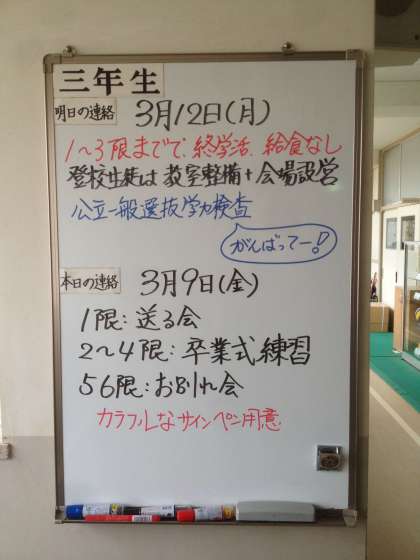 三年生
明日の連絡 3月12日(月)
1～3限まで、終学活、給食なし
登校生徒は教室整備+会場設営
公立一般選抜学力検査
がんばってー!
本日の連絡 3月9日(金)
1限:送る会
2～4限:卒業式練習
56限:お別れ会
カラフルなサインペン用意